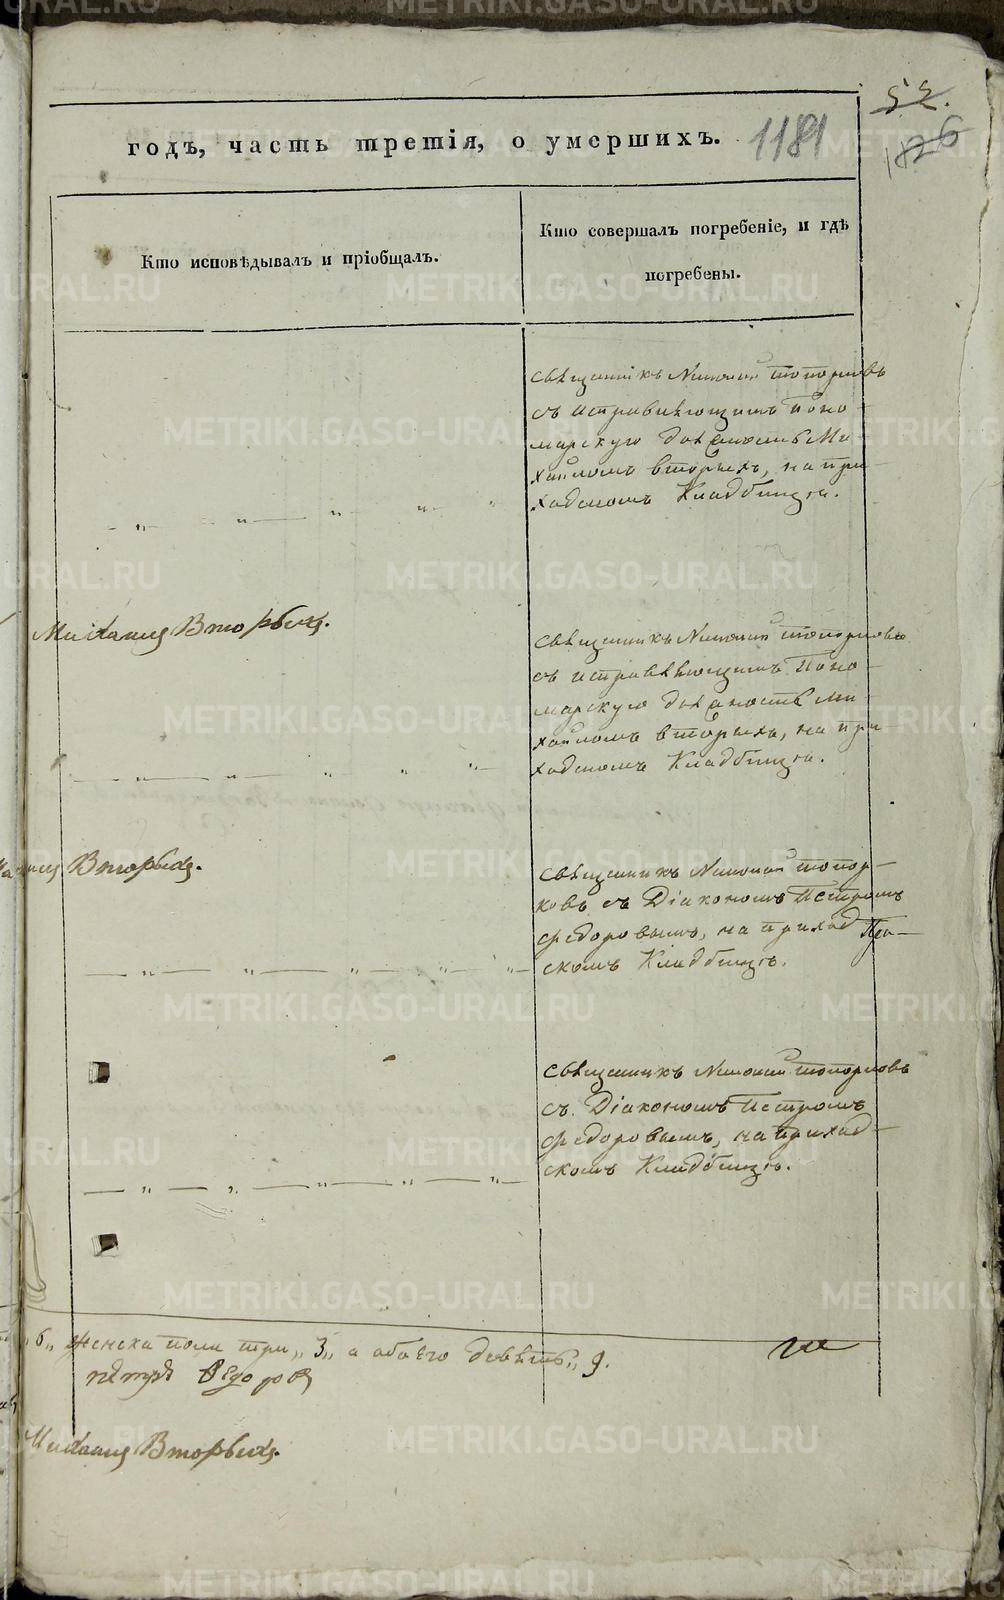 годъ, часть третія, о умершихъ.
1181
Кто исповѣдывалъ и пріобщалъ.
Кто совершалъ погребеніе, и гдѣ
погребены.
Священникъ Николай Топорковъ
съ исправляющимъ Поно-
марскую должность Ми-
хайломъ Вторыхъ, на при-
ходскомъ Кладбищѣ.
Михаилъ Вторыхъ.
Священникъ Николай Топорковъ
съ исправляющимъ Поно-
марскую должность Ми-
хайломъ Вторыхъ, на при-
ходскомъ Кладбищѣ.
Вторыхъ.
Священникъ Николай Топор-
ковъ съ Діакономъ Петромъ
Федоровымъ, на приход
скомъ Кладбищѣ.
Священникъ Николай Топорковъ
съ Діакономъ Петромъ
Федоровымъ, на приход-
скомъ Кладбищѣ.
6„ женска пола три„ 3„ а обоего девѣть„ 9.
Петръ Ѳедоровъ
Михаилъ Вторыхъ.
METRIKI.GASO-URAL.RU